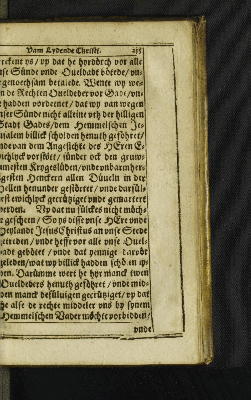 Vam Lydende Christi. 215
reckent ys / vp dat he hyrdörch vor alle
nse Sünde vnde Oueldadt böterde / vn-
genoechsam betalede. Wente wy we-
n de Rechten Oueldeder vor Gade / vn-
t hadden vordenet / dat wy van wegen
nser Sünde nicht alleine vth der hilligen
Stadt Gades / dem Hemmelschen Je-
rusalem billick scholden henuth geföhret /
nde van dem Angesichte des HEren E-
wichlyck vorstött / sünder ock den gruw-
amesten Krygeslüden / vnde vnbarmher-
igesten Henckern allen Düueln in der
Hellen henunder gestörtet / vnde darsül-
est ewichlyck gecrützyget vnde gemartert
werden. Vp dat nu sülckes nicht möch-
te geschen / So ys disse vnse HEre vnde
Heylandt Jesus Christus an vnse Stede
getreden / vnde hefft vor alle vnse Ouel-
dadt geböhet / vnde dat yennige dardt
geleden / wat wy billick hadden schöld en ly-
den. Darümme wert he hyr manck twen
Oueldeders henuth geföhret / vnde mid-
den manck desüluigen gecrützyget / vp dat
he alse de rechte middeler vns by synem
Hemmelschen Vader möchte vorbidden /
vnde